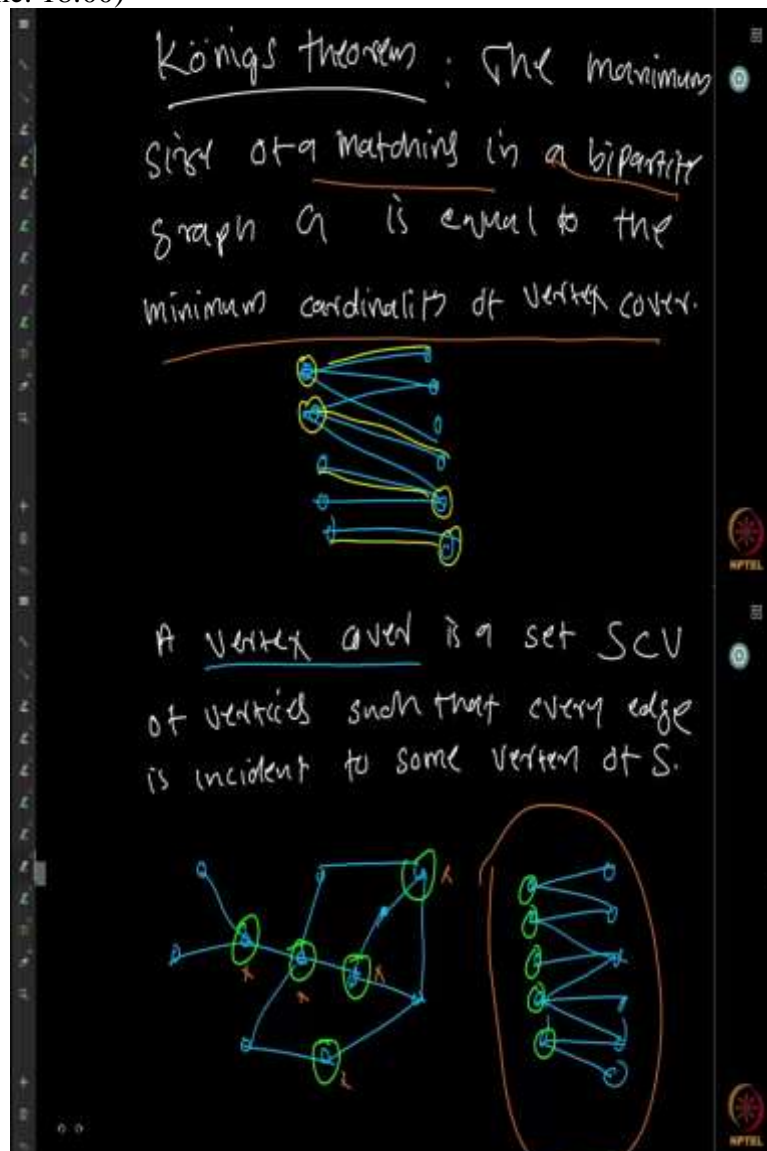 König's theorem : The maximum
size of a matching in a bipartite
graph G is equal to the
minimum cardinality of vertex cover.
NPTEL
A vertex cover is a set S⊂V
of vertices such that every edge
is incident to some vertex of S.
NPTEL